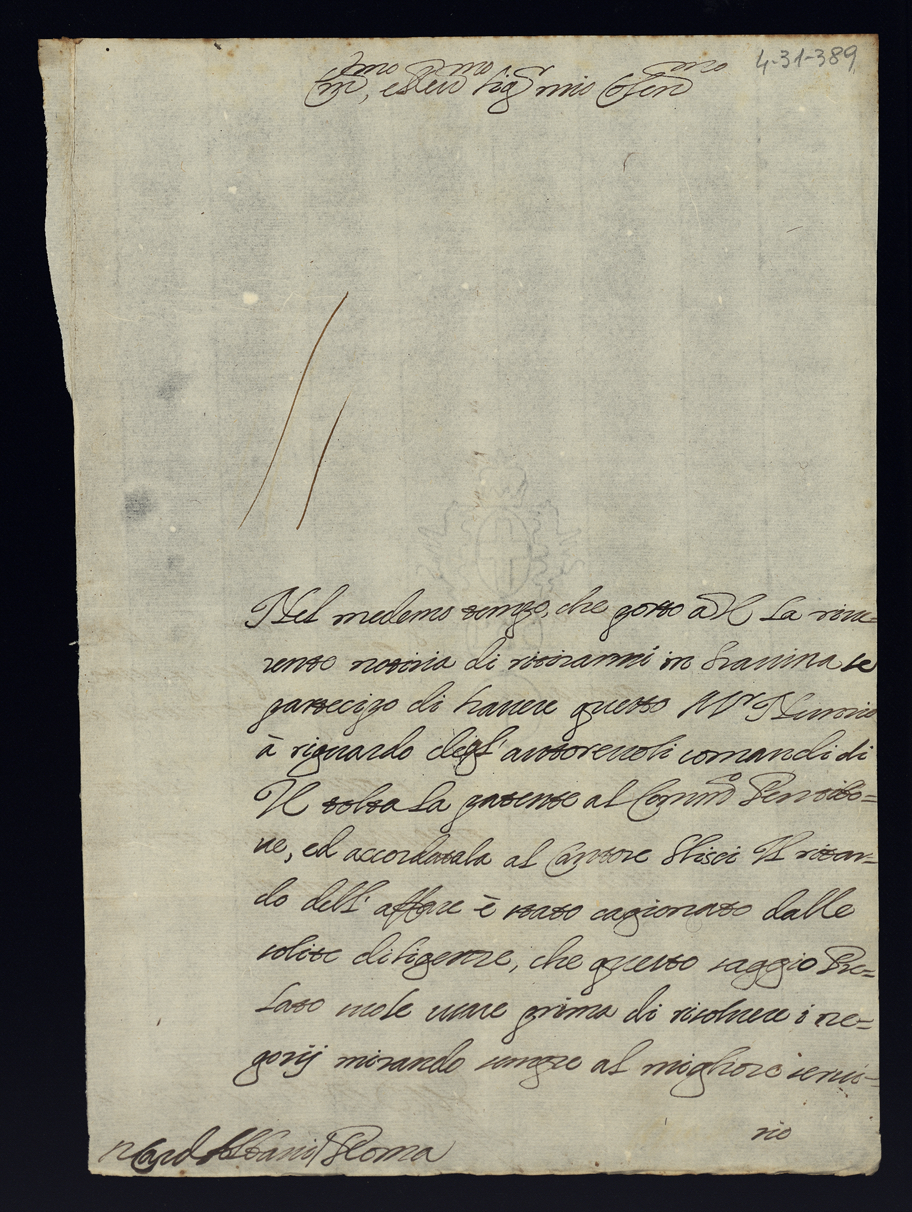 4-31-389
Em̃mo, e Rev̄mo Sigr mio Oss̄mo
Nel medemo tempo, che porto a VE la rive=
rente notizia di ritirarmi in Gravina le
partecipo di havere questo Mr Nunzio
à riguardo degl' autorevoli comandi di
VE tolta la patente al Comm̃o Pensibo=
ne, ed accordatala al Cantore Il ritar=
do dell' affare è stato cagionato dalle
solite diligenze, che questo saggio Pre=
lato vuole usare prima di risolvere i ne=
gozij mirando sempre al migliore servi=
zio
Card Albani Roma